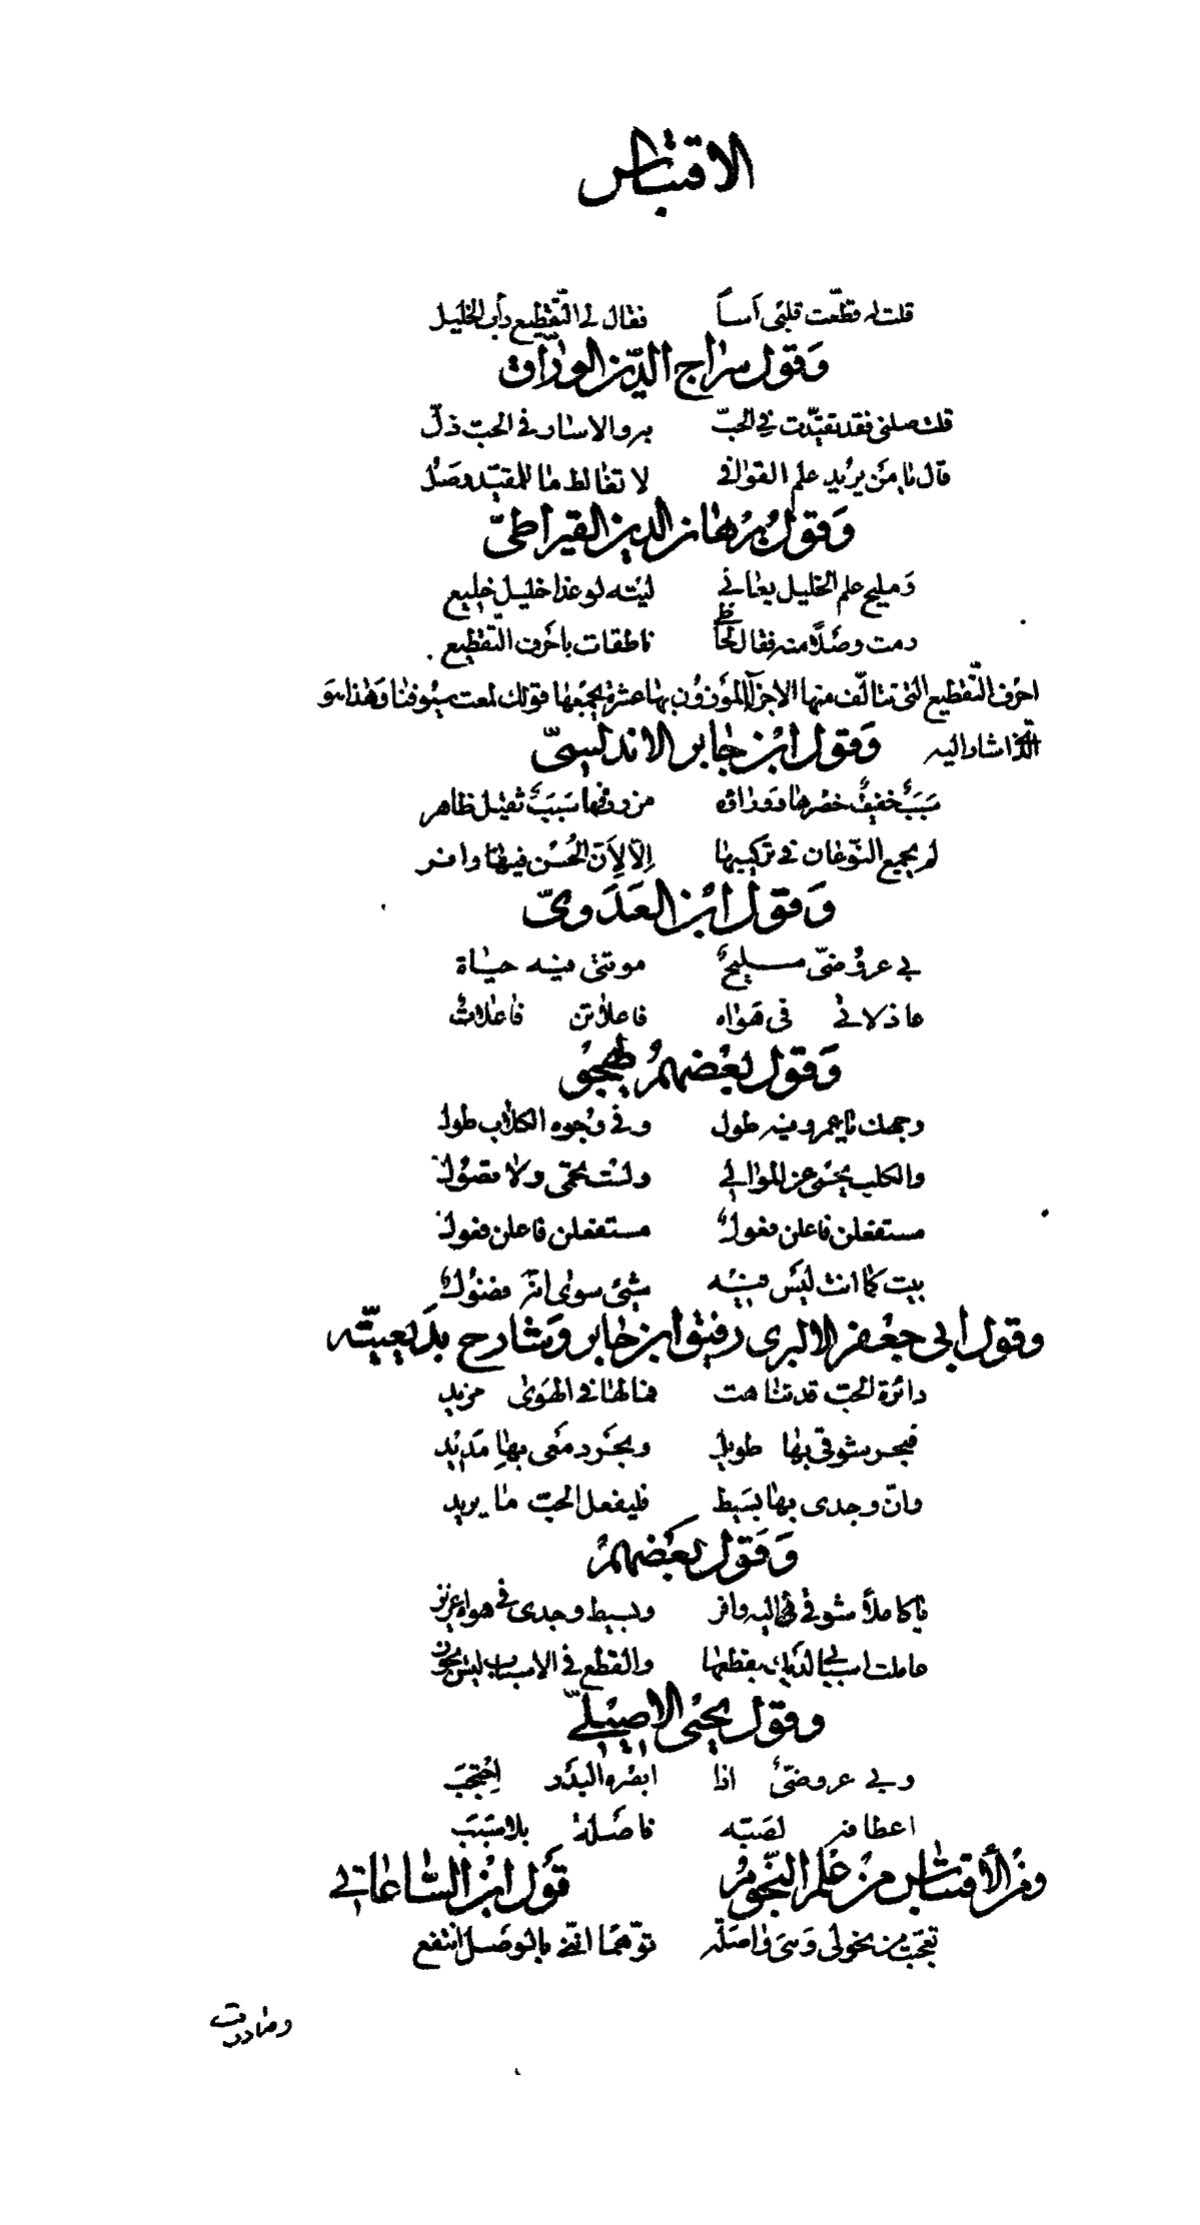 الاقتباس
قلت له قطّعت قلبى أساً فقال لى التّقطيع دأب الخليل
وَقول سراج الدّين الورّاق
قلت صلنى فقد تقيّدت فى الحبّ به والاسار فى الحب ذلّ
قال يا من يريد علم القوافى لا تغالط ما للمقيّد وصل
وَقول برهان الدين القيراطىّ
وَمليح علم الخليل يعانى ليته لو غدا خليل خليع
رمت وصلاً منه فقال لحاظ ناطقات باحرف التّقطيع
احرف التّقطيع التى تتالّف منها الاجزآ الموزون بها عشرة يجمعها قولك لمعت سيوفنا وهذا هو
الّذى اشار اليه وَقول ابن جابر الاندلسىّ
سَبَبٌ خفيفٌ خصرها ووراؤه من ردفها سَبَبٌ ثقيل ظاهر
لم يجمع النّوعان فى تركيبها الّا لِأنّ الحُسْن فيها وافر
وَقول ابن العَدَوىّ
بى عروضىّ مليحٌ موتتى فيه حياة
عاذلاتى فى هَواه فاعلاتن فاعلاتُ
وَقول بعضهم يهجو
وجهك يا عمرو فيه طول وفى وجوه الكلاب طول
والكلب يحمى عن الموالى ولست تحمى ولا تصول
مستفعلن فاعلن فعولٌ مستفعلن فاعلن فعول
بيت كما انت ليس فيه شئ سوى انّه فضولٌ
وقول ابى جعفر الالبرى رفيق ابن جابر وَشارح بديعيّته
دائرة الحبّ قد تناهت فمالها فى الهوى مزيد
فبحر شوقى بها طويل وبحر دمعى بها مَديد
وانّ وجدى بها بسيط فليفعل الحبّ ما يريد
وَقول بعضهم
يا كاملاً شوقى اليه وافر وبسيط وجدى فى هواه عزيز
عاملت اسبابى لديك بقطعها والقطع فى الاسباب ليس يجوز
وقول يحيى الاصيلىّ
وبى عروضىّ اذا ابصره البدر احتجب
اعطافه لصبّه فاصلة بلا سَبَب
ومن الأقتباس من علم النّجوم قول ابن السّاعاتى
تعجّبت من نحولى وَهى واصلة توّهما اننى بالوصل انتفع
وما درت